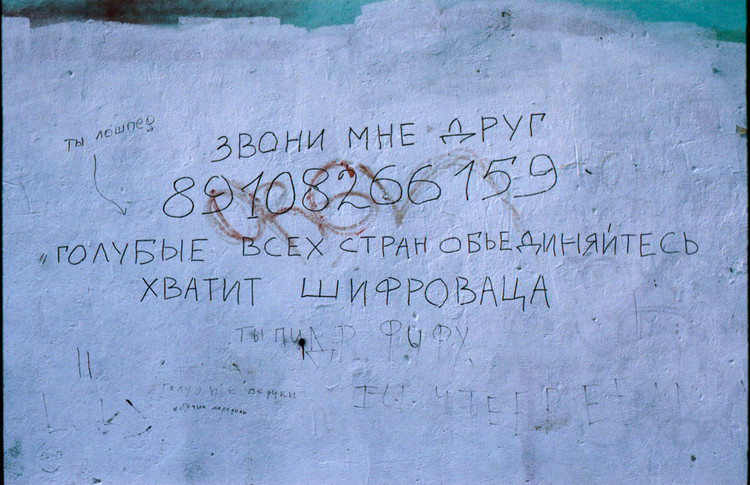 ТЫ лошпед
ЗВОНИ МНЕ ДРУГ
89108266159
ГОЛУБЫЕ ВСЕХ СТРАН ОБЬЕДИНЯЙТЕСЬ
ХВАТИТ ШИФРОВАЦА
ТЫ ФУ ФУ